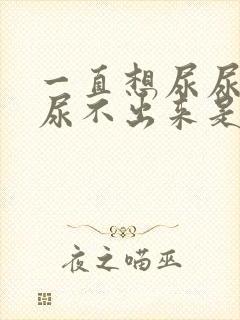 一直想尿尿
尿不出来是
夜之喵巫